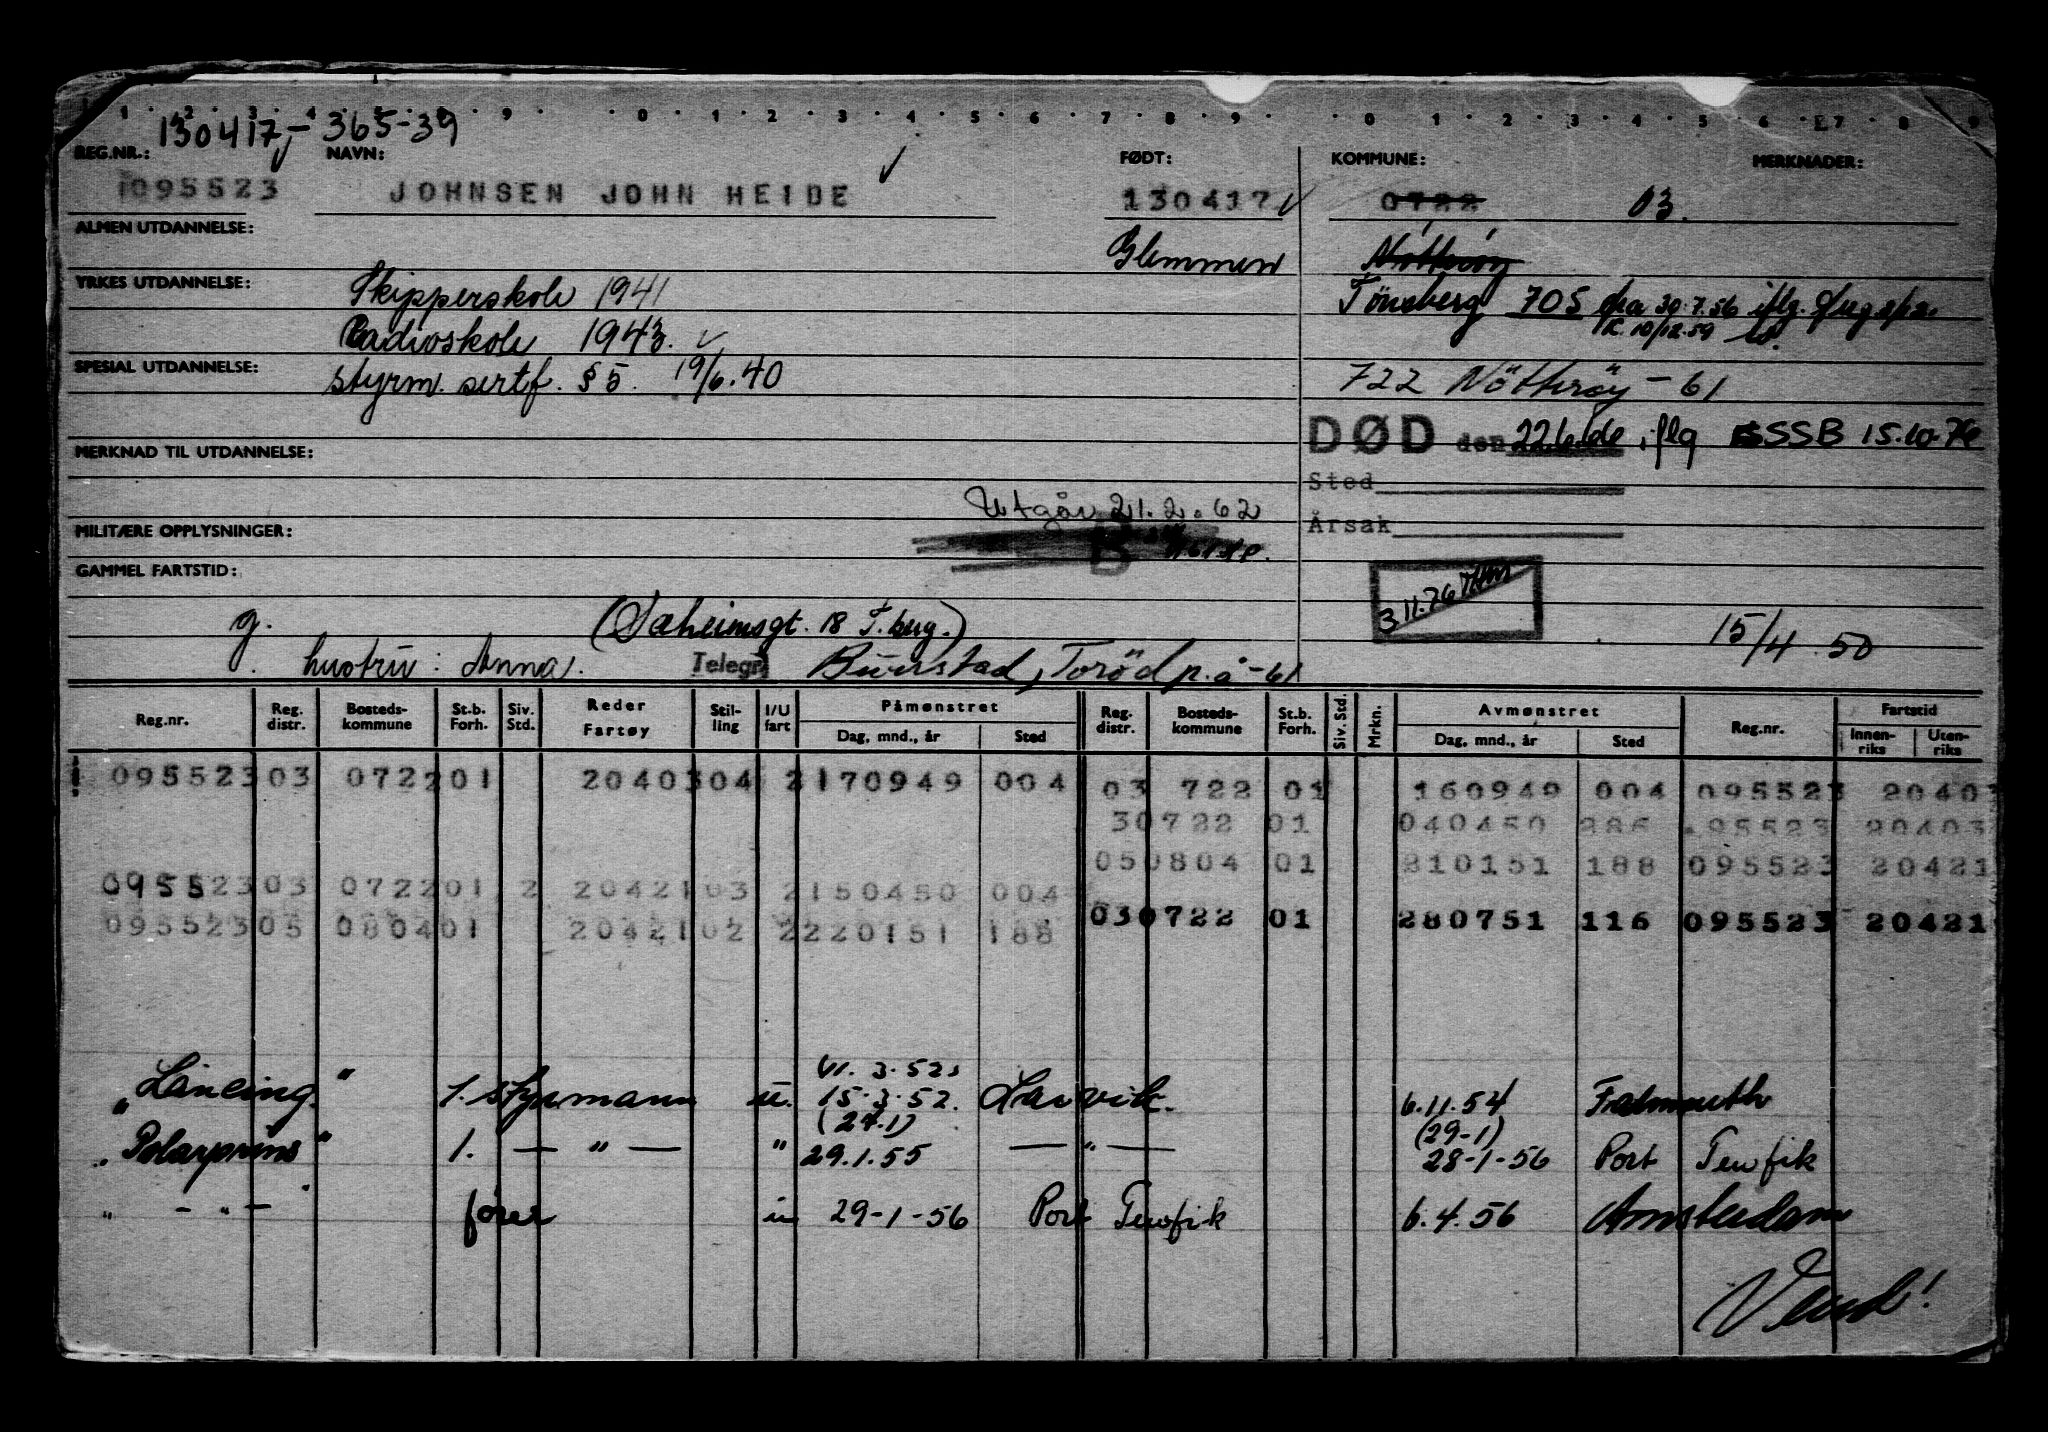 130417-36539
REG.NR.: NAVN: FØDT: KOMMUNE: MERKNADER:
095523 JOHNSEN JOHN HEIDE 130417 0722 03.
ALMEN UTDANNELSE: Glemmen Nøtterøy
YRKES UTDANNELSE: Skipperskole 1941 Tönsberg 705 fra 30.7.56 iflg.
Radioskole 1943. 10/12.59
SPESIAL UTDANNELSE: styrm. sertf. § 5. 19/6.40 722 Nötteröy - 61
DØD den 22.6.66 iflg SSB 15.10.76
MERKNAD TIL UTDANNELSE:
Sted
Utgår 21.2.62
MILITÆRE OPPLYSNINGER: Årsak
GAMMEL FARTSTID:
3 11.76
g. (Sæheimsgt. 18 T.berg.) 15/4 50
hustru: Anna. Telegr. Buerstad, Torød p.å - 61
Reg.nr. Reg. distr. Bosteds-kommune St.b. Forh. Siv. Std. Reder Fartøy Stil-ling I/U fart Påmønstret Dag, mnd., år Sted Reg. distr. Bosteds-kommune St.b. Forh. Siv. Std. Mrkn. Avmønstret Dag, mnd., år Sted Reg.nr. Fartstid Innen-riks Uten-riks
095523 03 0722 01 20403 04 2 170949 004 03 722 01 160949 004 095523 20403
30722 01 040450 286 95523 20403
050804 01 210151 188 095523 20421
095523 03 0722 01 2 20421 03 2 150450 004
030722 01 280751 116 095523 20421
095523 05 0804 01 20421 02 2 220151 188
11.3.52
"Lancing" 1. styrmann u. 15.3.52. Larvik. 6.11.54 Falmouth
(24.1) (29-1)
"Polarprins" 1. — " — " 29.1.55 — " — 28-1-56 Port Tewfik
" - " - fører u 29-1-56 Port Tewfik 6.4.56 Amsterdam
Vend!